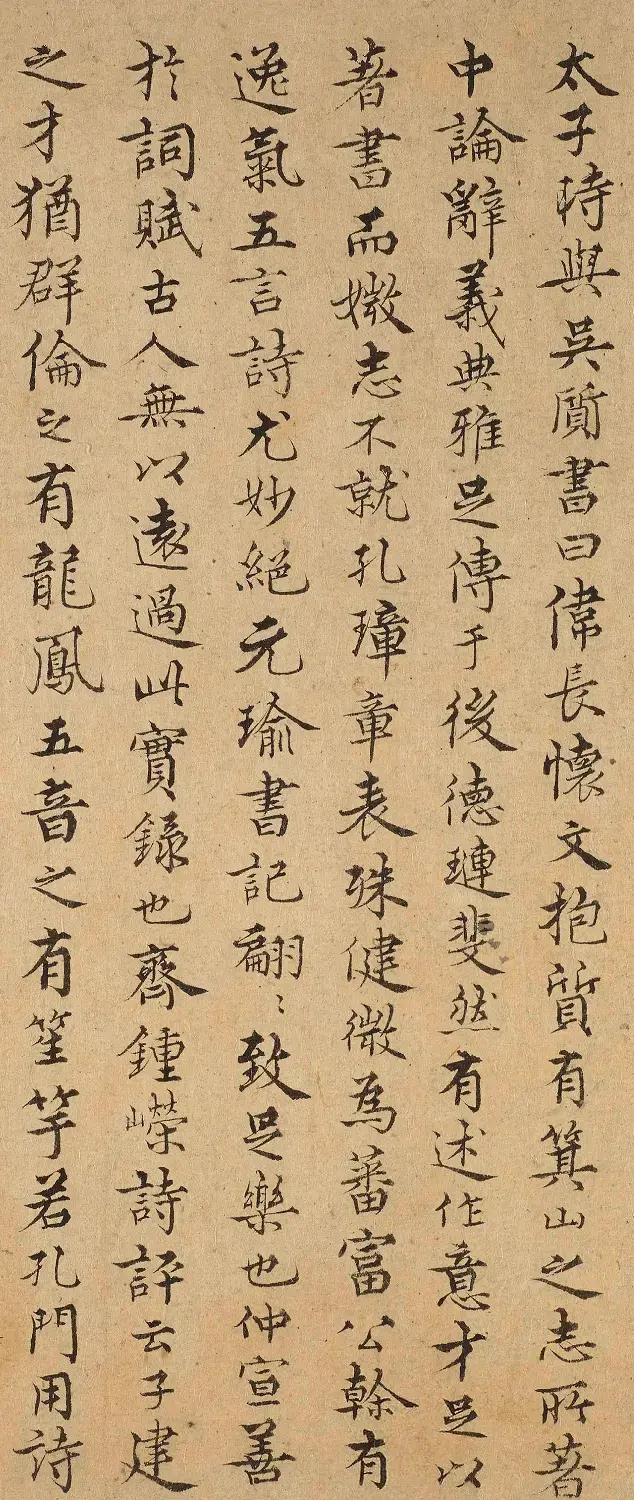 太子時與吳質書曰偉長懷文抱質有箕山之志所著
中論辭義典雅足傳于後德璉斐然有述作意才足以
著書而媺志不就孔璋章表殊健微為蕃富公幹有
逸氣五言詩尤妙絕元瑜書記翩〻致足樂也仲宣善
於詞賦古人無以遠過此實錄也齊鍾嶸詩評云子建
之才猶群倫之有龍鳳五音之有笙竽若孔門用詩